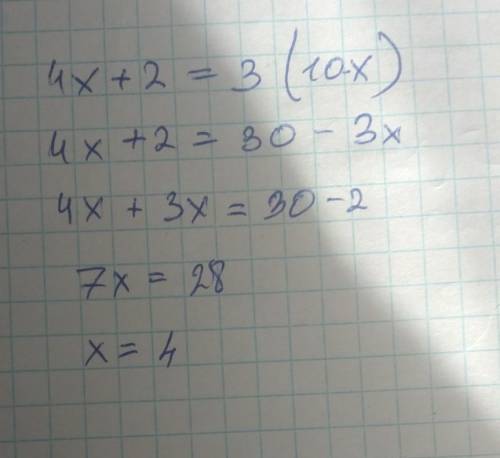 4x + 2 = 3 (10-x)
4x + 2 = 30 - 3x
4x + 3x = 30 - 2
7x = 28
x = 4